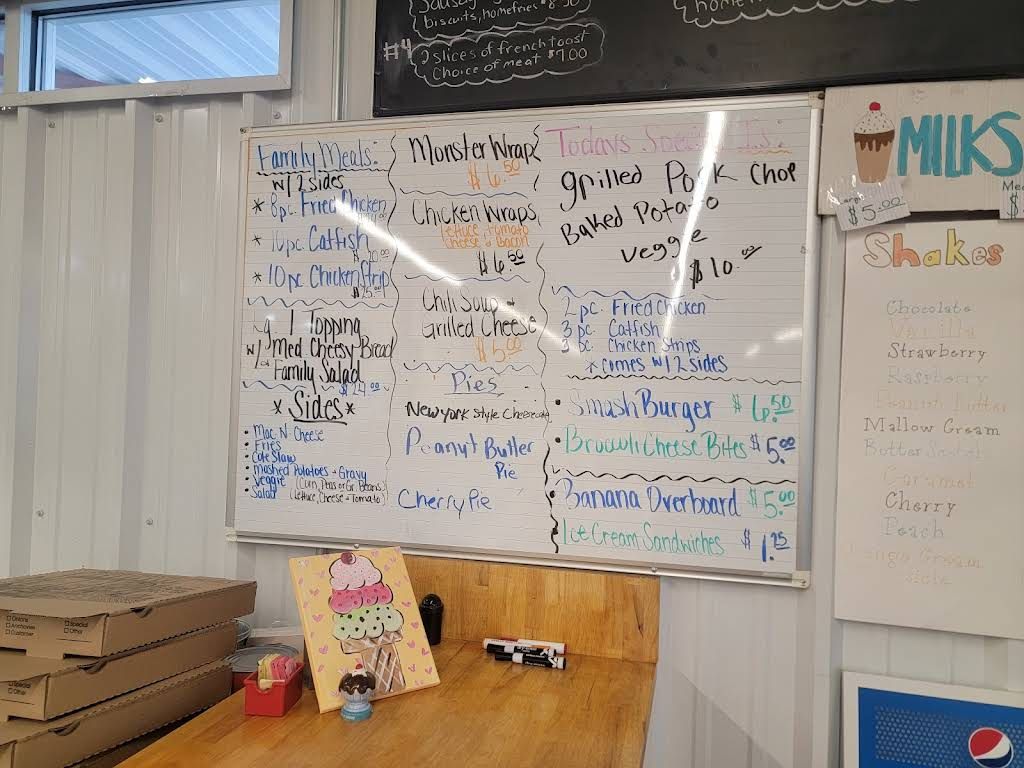 Sausag
biscuits, homefries $8.50
home
#4 2 slices of french toast
Choice of meat $7.00
Family Meals:
w/ 2 sides
* 8pc. Fried Chicken
* 10pc. Catfish
* 10 pc Chicken Strip
$25.00
1 Topping
w/ Med Cheesy Bread
Family Salad
$24.00
* Sides *
• Mac N Cheese
• Fries
• Cole Slaw
• Mashed Potatoes + Gravy
• Veggie (Corn, Peas or Gr. Beans)
• Salad (Lettuce, Cheese + Tomato)
Monster Wrap
$6.50
Chicken Wraps
Lettuce, Tomato
Cheese & Bacon
$6.50
Chili Soup &
Grilled Cheese
$5.00
Pies
New York Style Cheesecake
Peanut Butter
Pie
Cherry Pie
Todays Special Is:
grilled Pork Chop
Baked Potato
Veggie
$10.00
2 pc. Fried Chicken
3 pc. Catfish
3 pc. Chicken Strips
*comes w/ 2 sides
• Smash Burger $6.50
• Broccoli Cheese Bites $5.00
• Banana Overboard $5.00
Ice Cream Sandwiches $1.25
MILKS
Large
$5.00
Me
$
Shakes
Chocolate
Vanilla
Strawberry
Raspberry
Peanut Butter
Mallow Cream
Butter Scotch
Caramel
Cherry
Peach
Orange Cream
sicle
Onions
Anchovies
Customer
Special
Other
Special
Other
pepsi